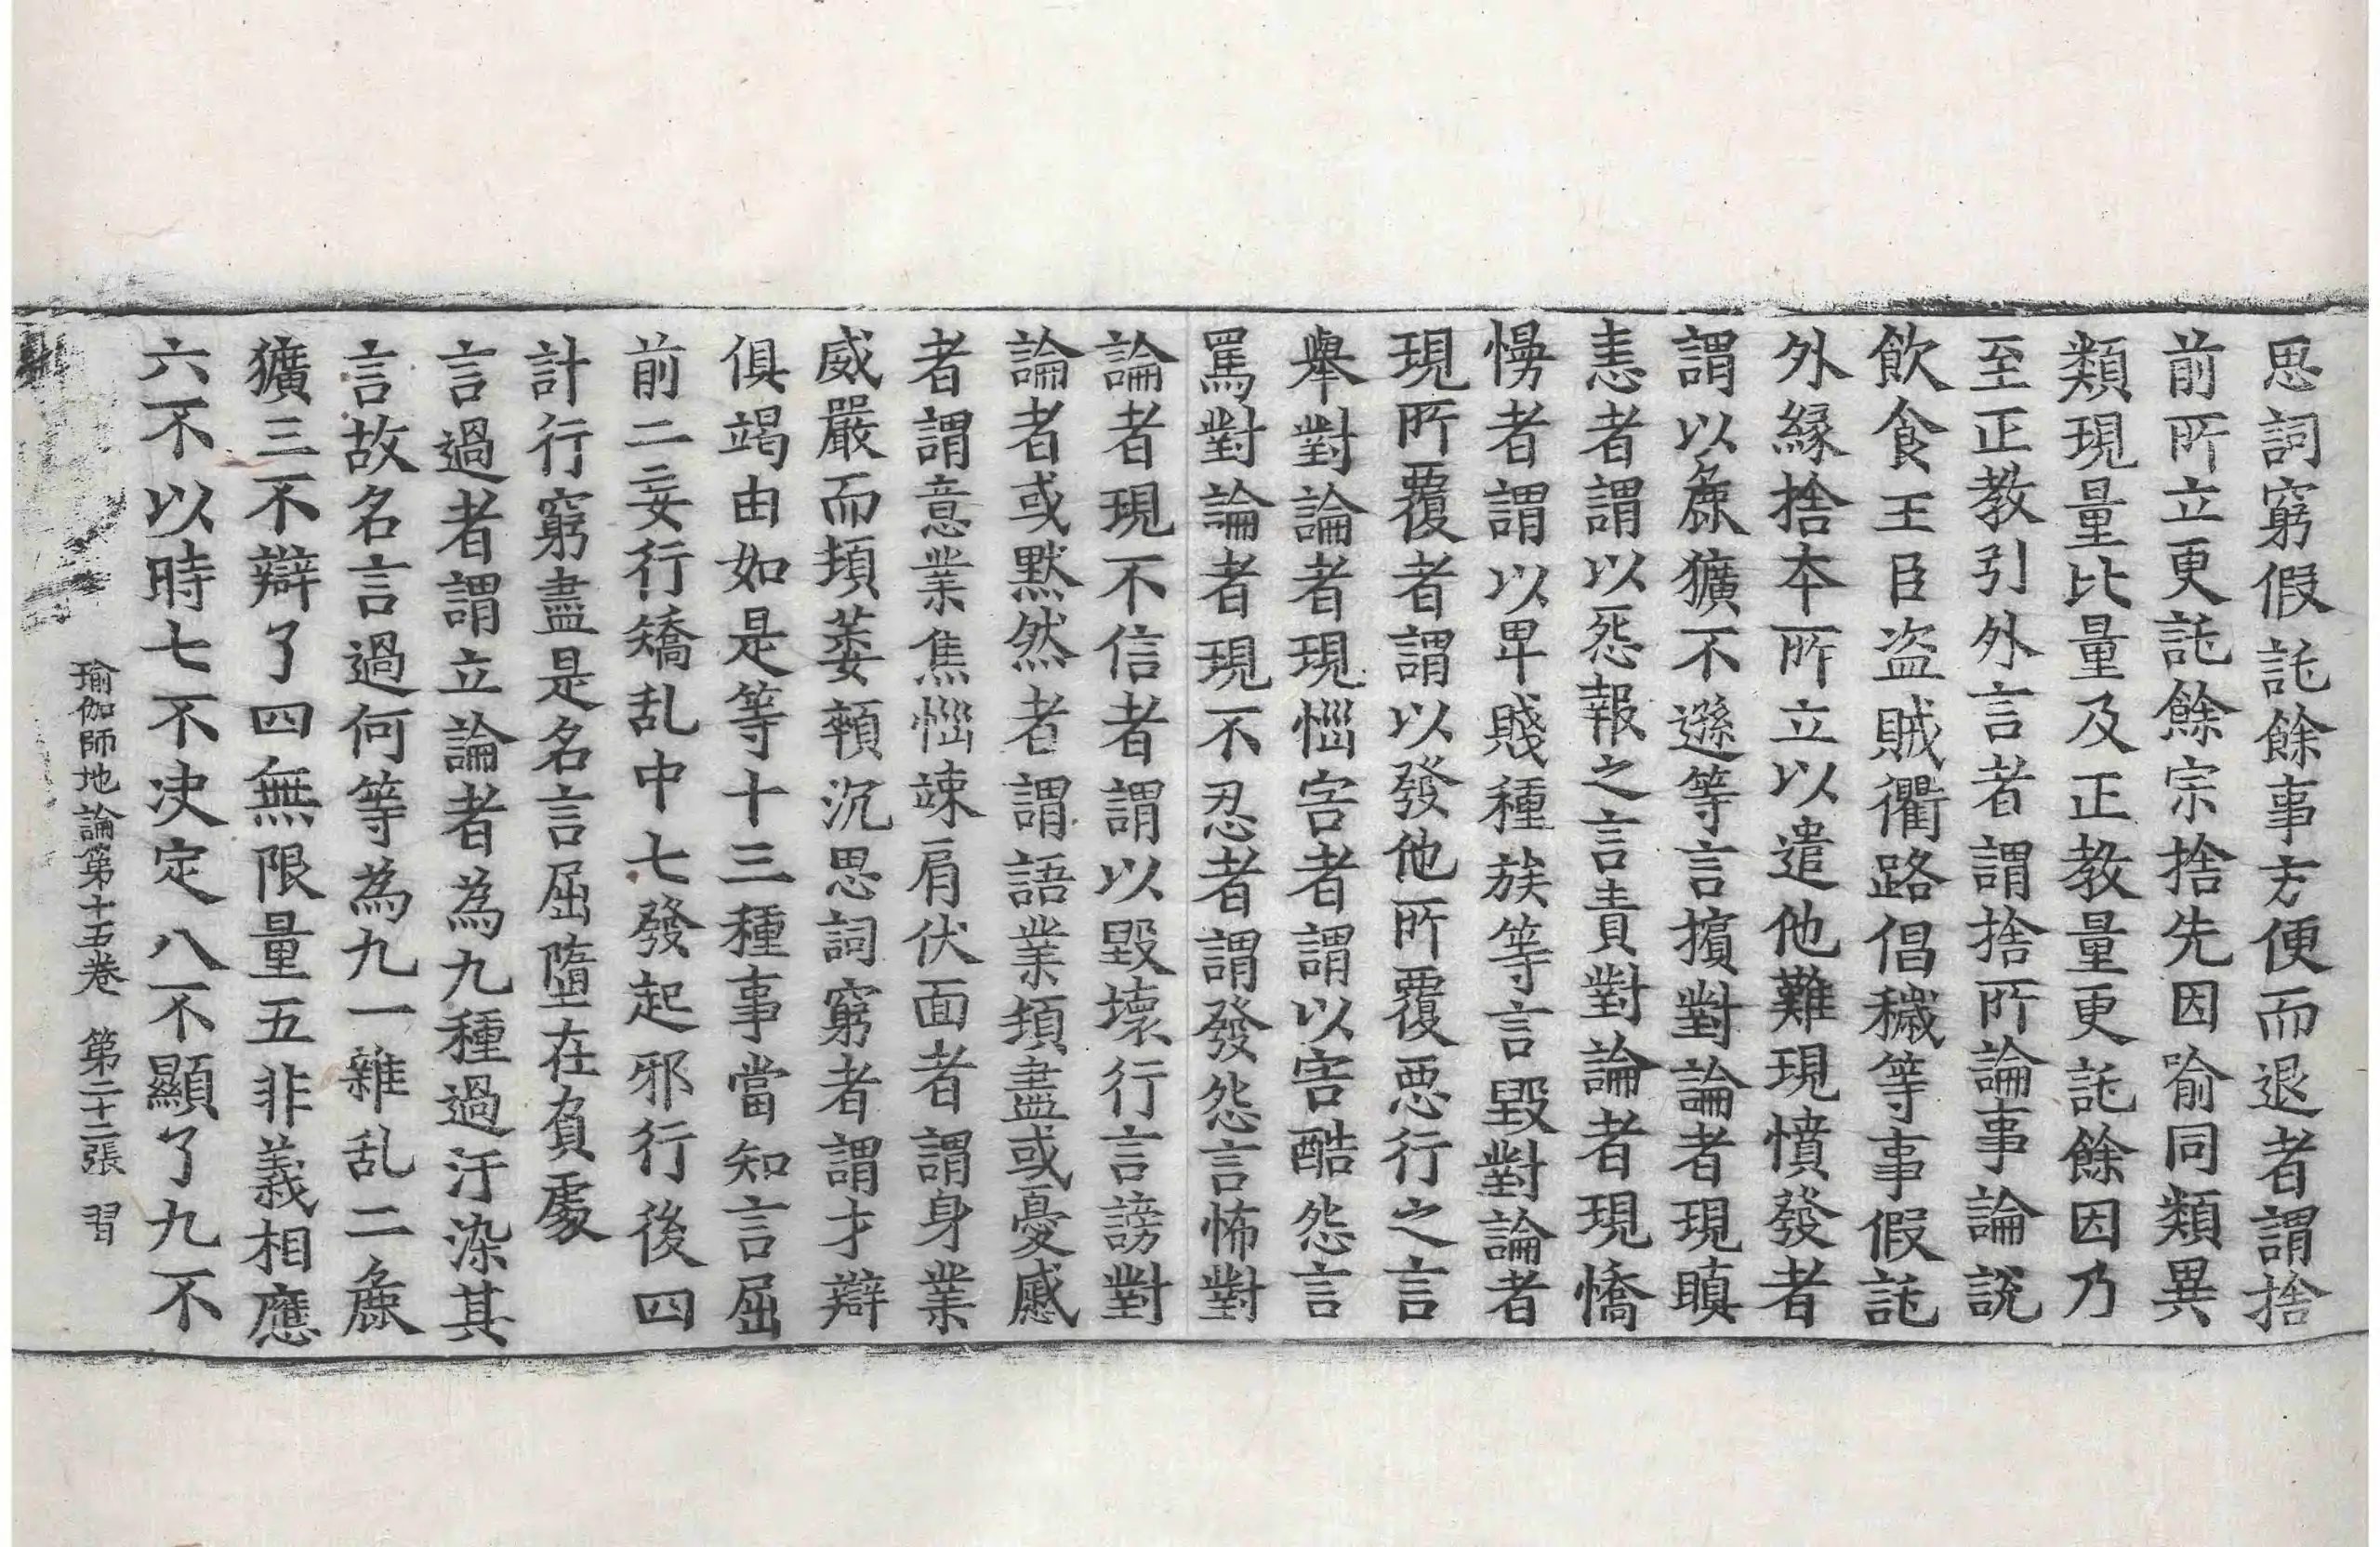 思詞窮假託餘事方便而退者謂捨
前所立更託餘宗捨先因喻同類異
類現量比量及正教量更託餘因乃
至正教引外言者謂捨所論事論說
飲食王臣盜賊衢路倡穢等事假託
外緣捨本所立以遣他難現憤發者
謂以麁獷不遜等言擯對論者現瞋
恚者謂以怨報之言責對論者現憍
慢者謂以卑賤種族等言毀對論者
現所覆者謂以發他所覆惡行之言
舉對論者現惱害者謂以害酷怨言
罵對論者現不忍者謂發怨言怖對
論者現不信者謂以毀壞行言謗對
論者或默然者謂語業頓盡或憂慼
者謂意業焦惱竦肩伏面者謂身業
威嚴而頓萎頓沉思詞窮者謂才辯
俱竭由如是等十三種事當知言屈
前二妄行矯乱中七發起邪行後四
計行窮盡是名言屈墮在負處
言過者謂立論者為九種過汙染其
言故名言過何等為九一雜乱二麁
獷三不辯了四無限量五非義相應
六不以時七不決定八不顯了九不
瑜伽師地論第十五卷 第二十二張 習